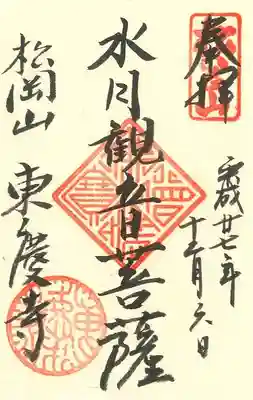 奉拝
平成廿七年
十二月六日
水月観音菩薩
松岡山
東慶寺